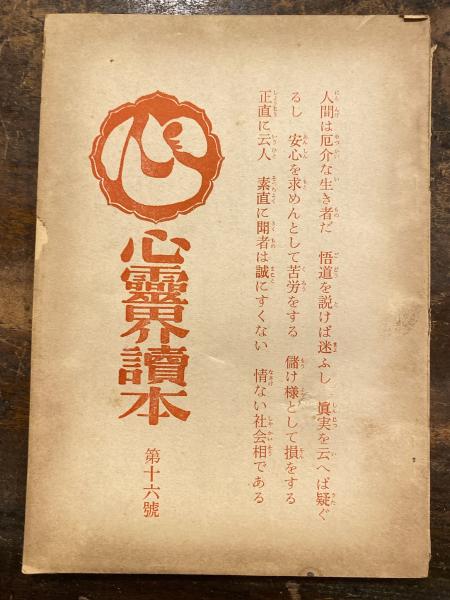 人間は厄介な生き者だ　悟道を説けば迷ふし　眞実を云へば疑ぐ
るし　安心を求めんとして苦労をする　儲け様として損をする
正直に云人　素直に聞者は誠にすくない　情ない社会相である
心
心靈界讀本
第十六號